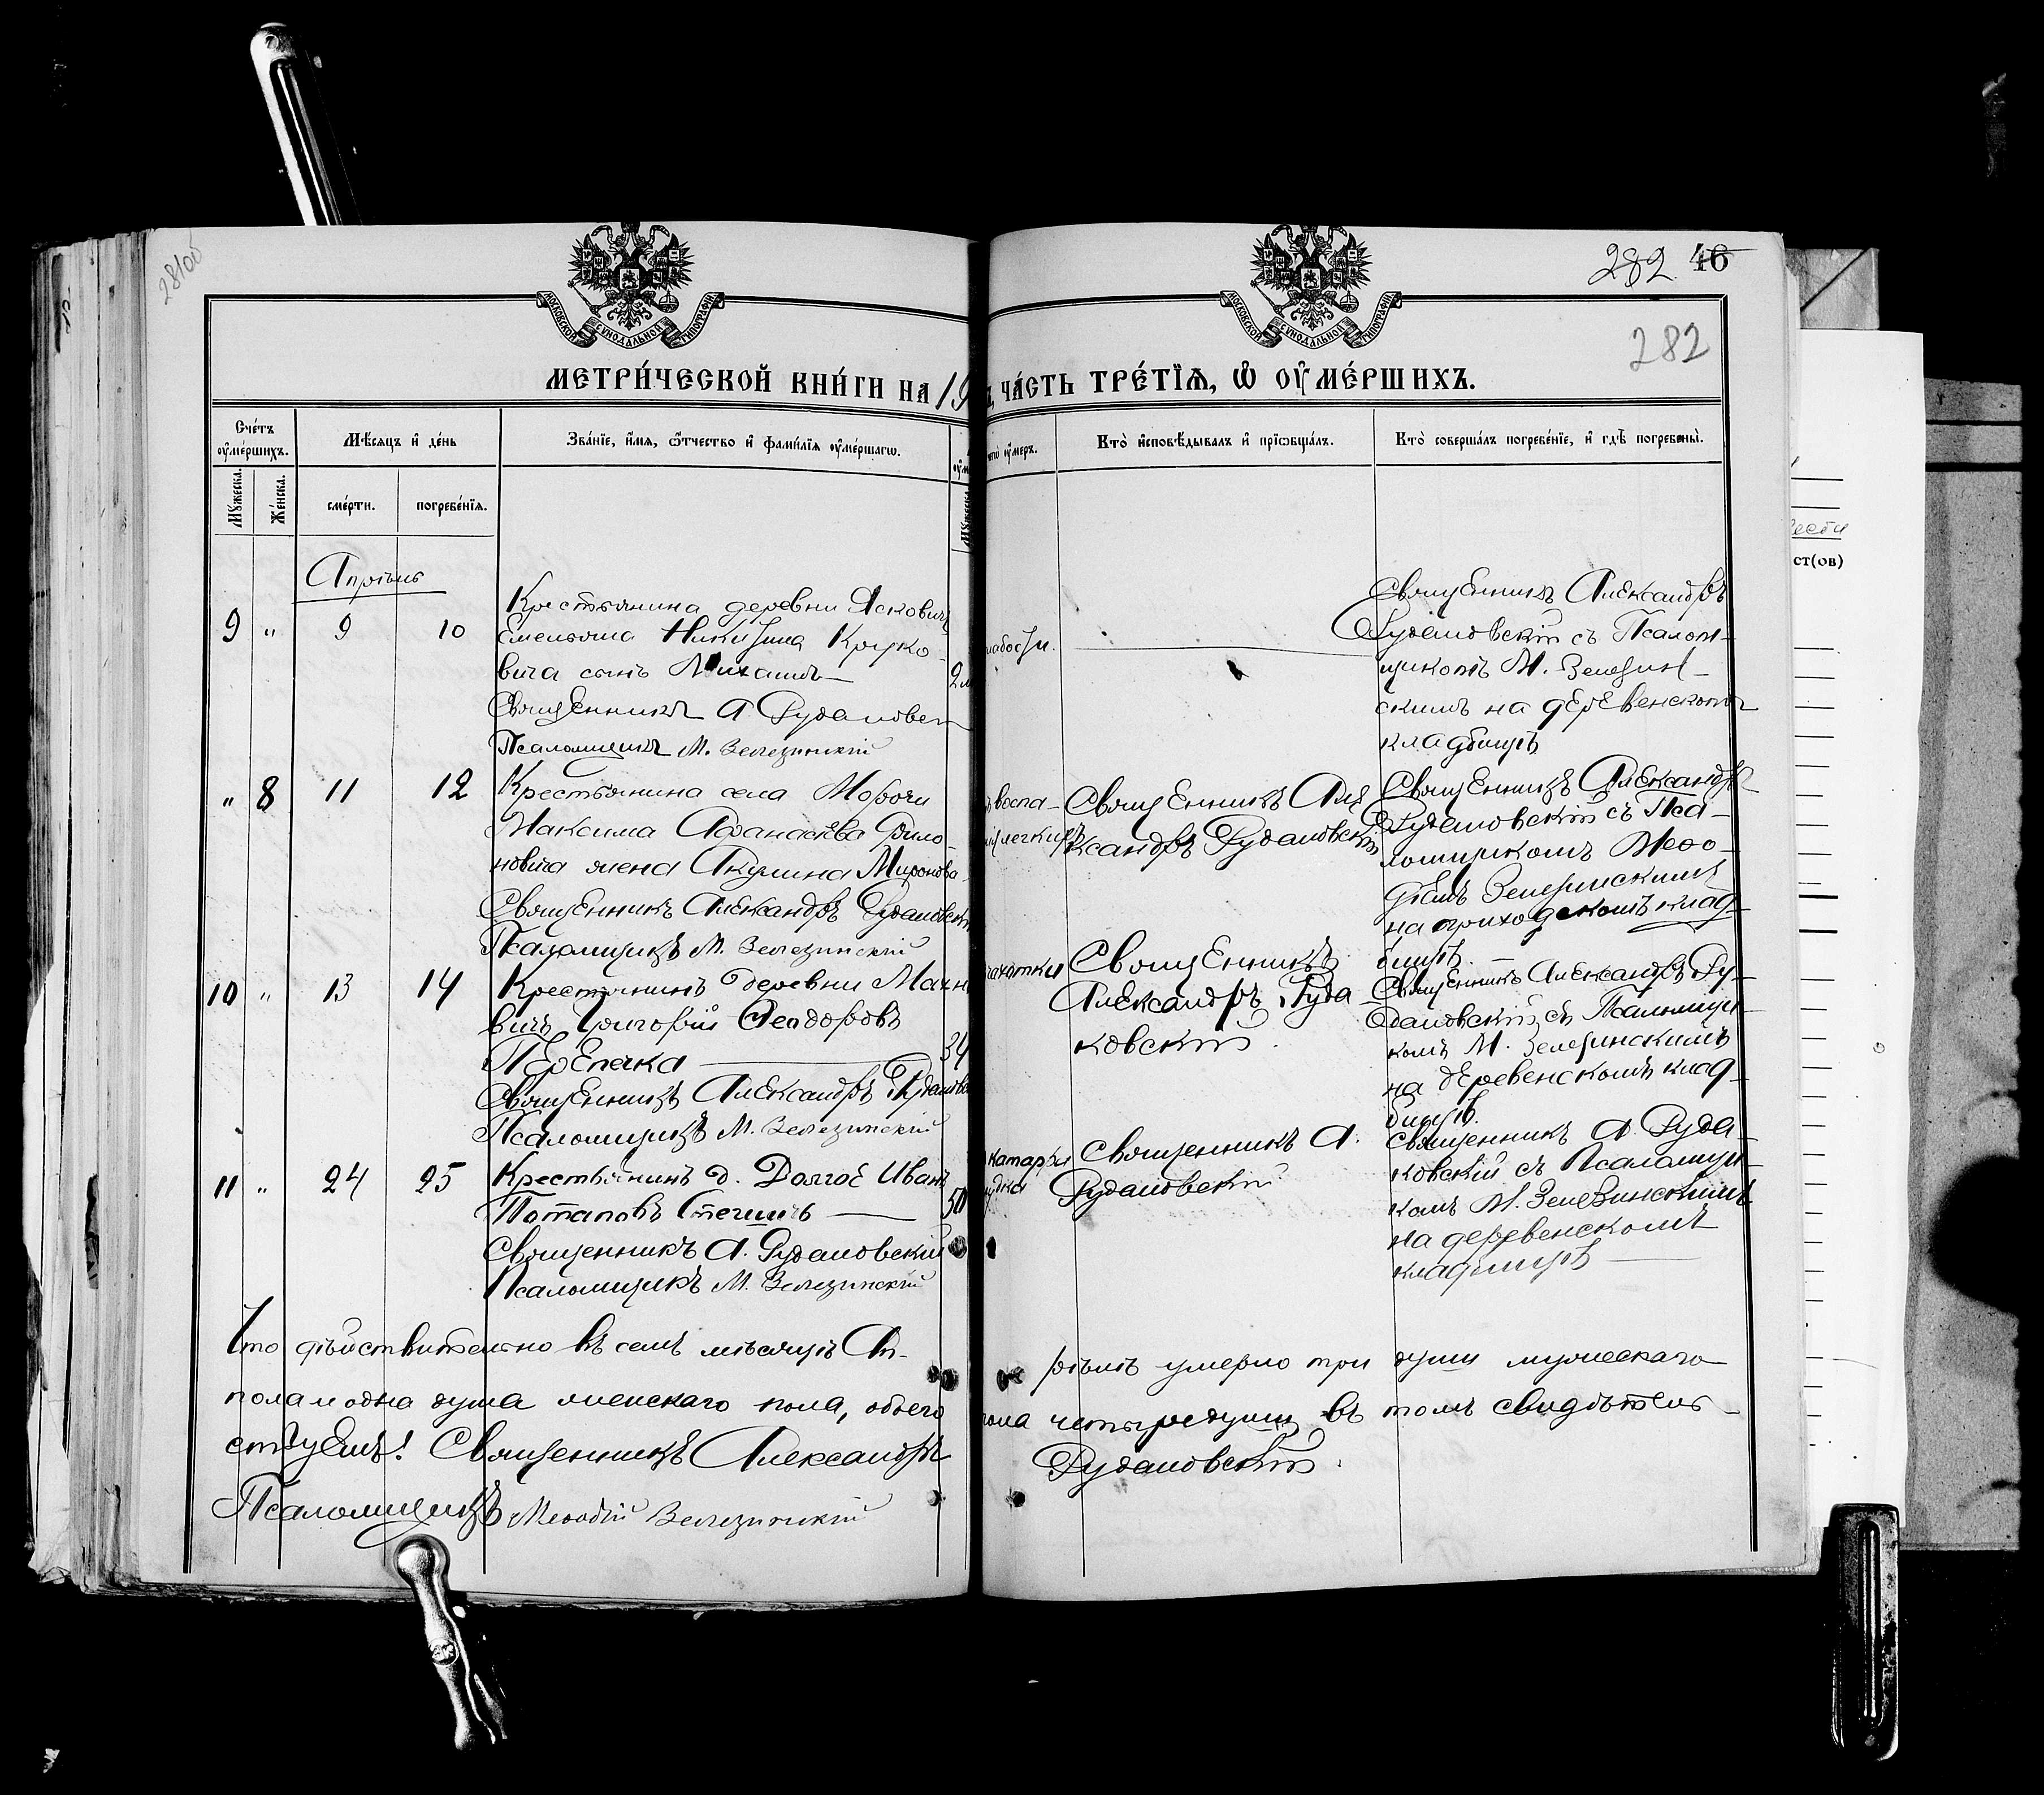 281об
282 46
282
МОСКОВСКОЙ СѴНОДАЛЬНОЙ ТИПОГРАФІИ
МОСКОВСКОЙ СѴНОДАЛЬНОЙ ТИПОГРАФІИ
МЕТРИ́ЧЕСКОЙ КНИ́ГИ НА 19
ЧА́СТЬ ТРЕ́ТЇѦ, Ѡ҆ ОУ҆МЕ́РШИХЪ.
Сче́тъ оу҆ме́ршихъ.
Мѣ́сяцъ и҆ де́нь
Зва́нїе, и҆́мѧ, ѻ҆́тчество и҆ фами́лїѧ оу҆ме́ршагѡ.
оу҆ме́ръ.
Кто̀ и҆сповѣ́дывалъ и҆ прїѡбща́лъ.
Кто̀ соверша́лъ погребе́нїе, и҆ гдѣ̀ погребены̀.
Мꙋ́жеска.
Же́нска.
сме́рти.
погребе́нїѧ.
Апрѣль
9 " 9 10
Крестьянина деревни Яскович
Емельяна Никитина Круко-
вича сынъ Михаилъ—
Священникъ А Рудаковск
Псаломщикъ М. Зелезинскій
2м
слабости.
Священникъ Александръ
Рудаковскій съ Псалом-
щикомъ М. Зелезин-
скимъ на деревенскомъ
кладбищѣ
" 8 11 12
Крестьянина села Морочи
Максима Афанасьева Фило-
новича жена Акулина Миронова
Священникъ Александръ Рудаковскій
Псаломщикъ М. Зелезинскій
воспа-
легкихъ
Священникъ Але
ксандръ Рудаковскій
Священникъ Александръ
Рудаковскій съ Пса-
ломщикомъ Меѳо-
діемъ Зелезинскимъ
на приходскомъ клад-
бищѣ.—
10 " 13 14
Крестьянинъ деревни Махн
вичъ Григорій Ѳеодоровъ
Перепечка
Священникъ Александръ Рудаковс
Псаломщикъ М. Зелезинскій
34
чахотки
Священникъ
Александръ Руда
ковскій.
Священникъ Александръ Ру-
даковскій съ Псаломщи-
комъ М. Зелезинскимъ
на деревенскомъ клад-
бищѣ.
11 " 24 25
Крестьянинъ д. Долгое Иванъ
Потаповъ
Священникъ А. Рудаковскій
Псаломщикъ М. Зелезинскій
50
катарра
Священникъ А.
Рудаковскій
Священникъ А. Руда-
ковскій съ Псаломщи-
комъ М. Зелезинскимъ
на деревенскомъ
кладбищѣ
Что дѣйствительно въ семъ мѣсяцѣ Ап-
рѣлѣ умерло три души мужескаго
пола и одна душа женскаго пола, обоего
пола четыре души, въ томъ свидѣтель-
ствуемъ: Священникъ Александръ
Рудаковскій.
Псаломщикъ Меѳодій Зелезинскій
ст(ов)